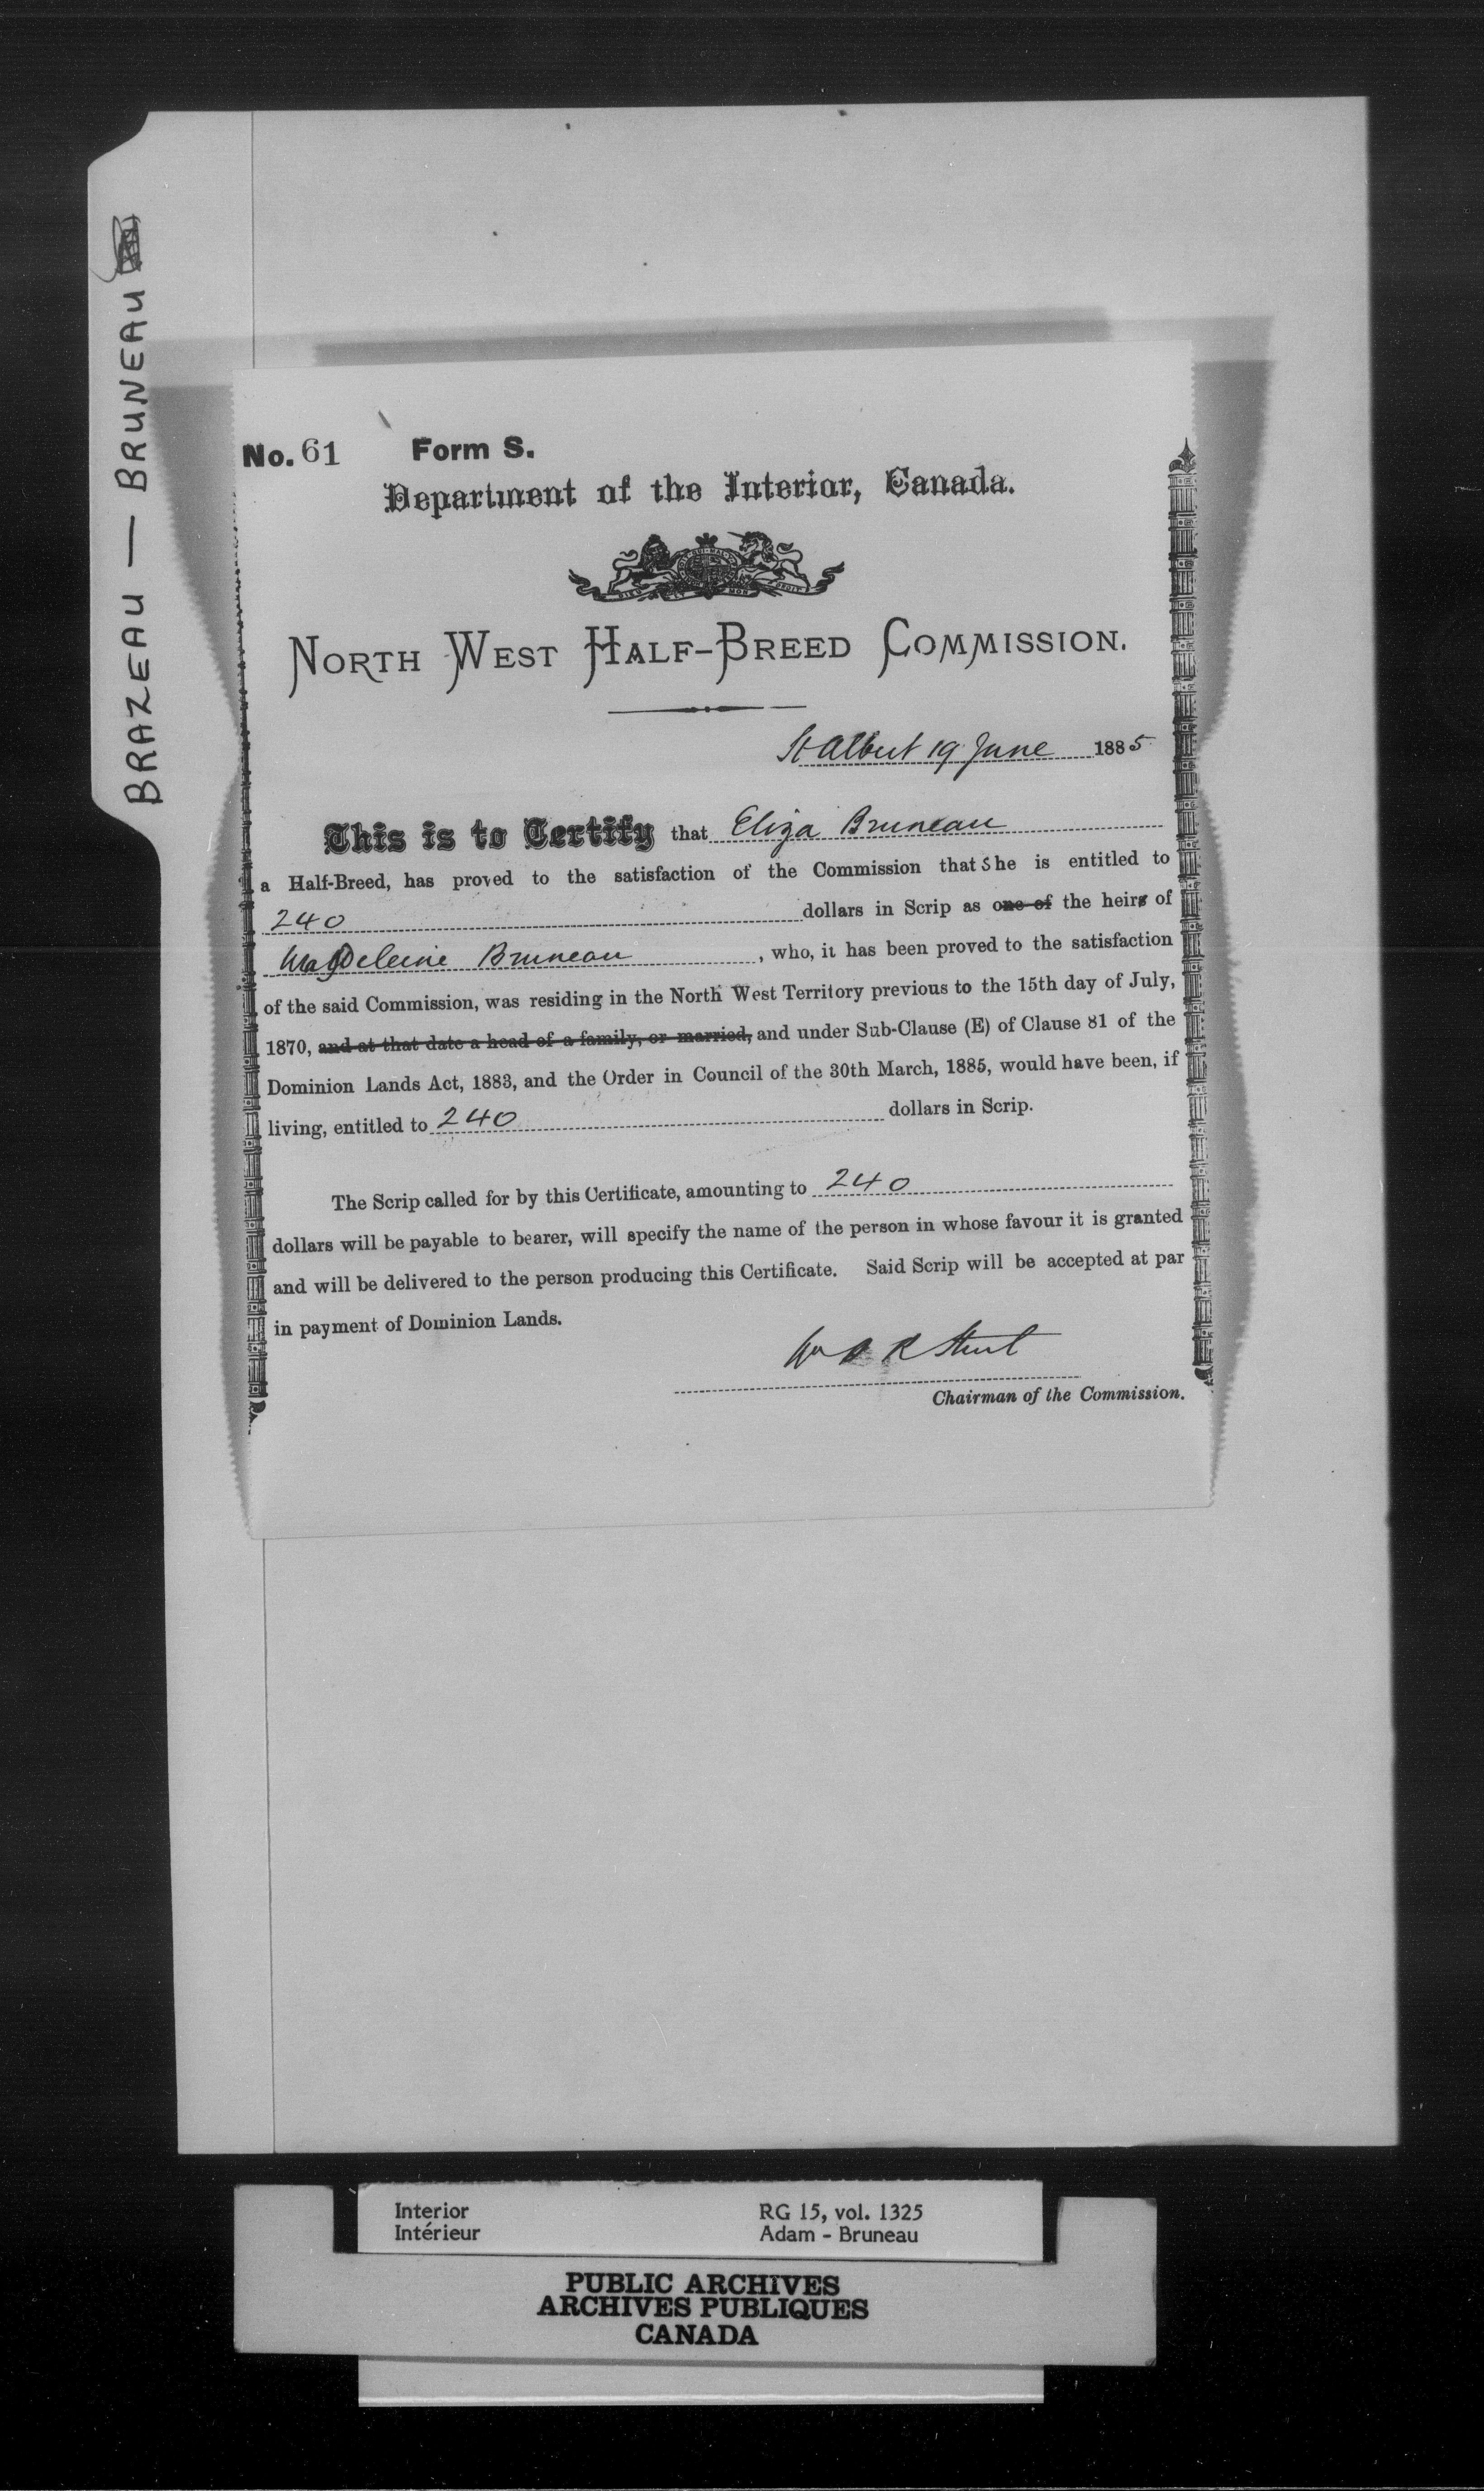 BRAZEAU — BRUNEAU
No. 61 Form S.
Department of the Interior, Canada.
NORTH WEST HALF-BREED COMMISSION.
St Albert 19 June 1885
This is to Certify that Eliza Bruneau
a Half-Breed, has proved to the satisfaction of the Commission that She is entitled to
240 dollars in Scrip as one of the heirs of
Magdeleine Bruneau, who, it has been proved to the satisfaction
of the said Commission, was residing in the North West Territory previous to the 15th day of July,
1870, and at that date a head of a family, or married, and under Sub-Clause (E) of Clause 81 of the
Dominion Lands Act, 1883, and the Order in Council of the 30th March, 1885, would have been, if
living, entitled to 240 dollars in Scrip.
The Scrip called for by this Certificate, amounting to 240
dollars will be payable to bearer, will specify the name of the person in whose favour it is granted
and will be delivered to the person producing this Certificate. Said Scrip will be accepted at par
in payment of Dominion Lands.
Chairman of the Commission.
Interior RG 15, vol. 1325
Intérieur Adam - Bruneau
PUBLIC ARCHIVES
ARCHIVES PUBLIQUES
CANADA